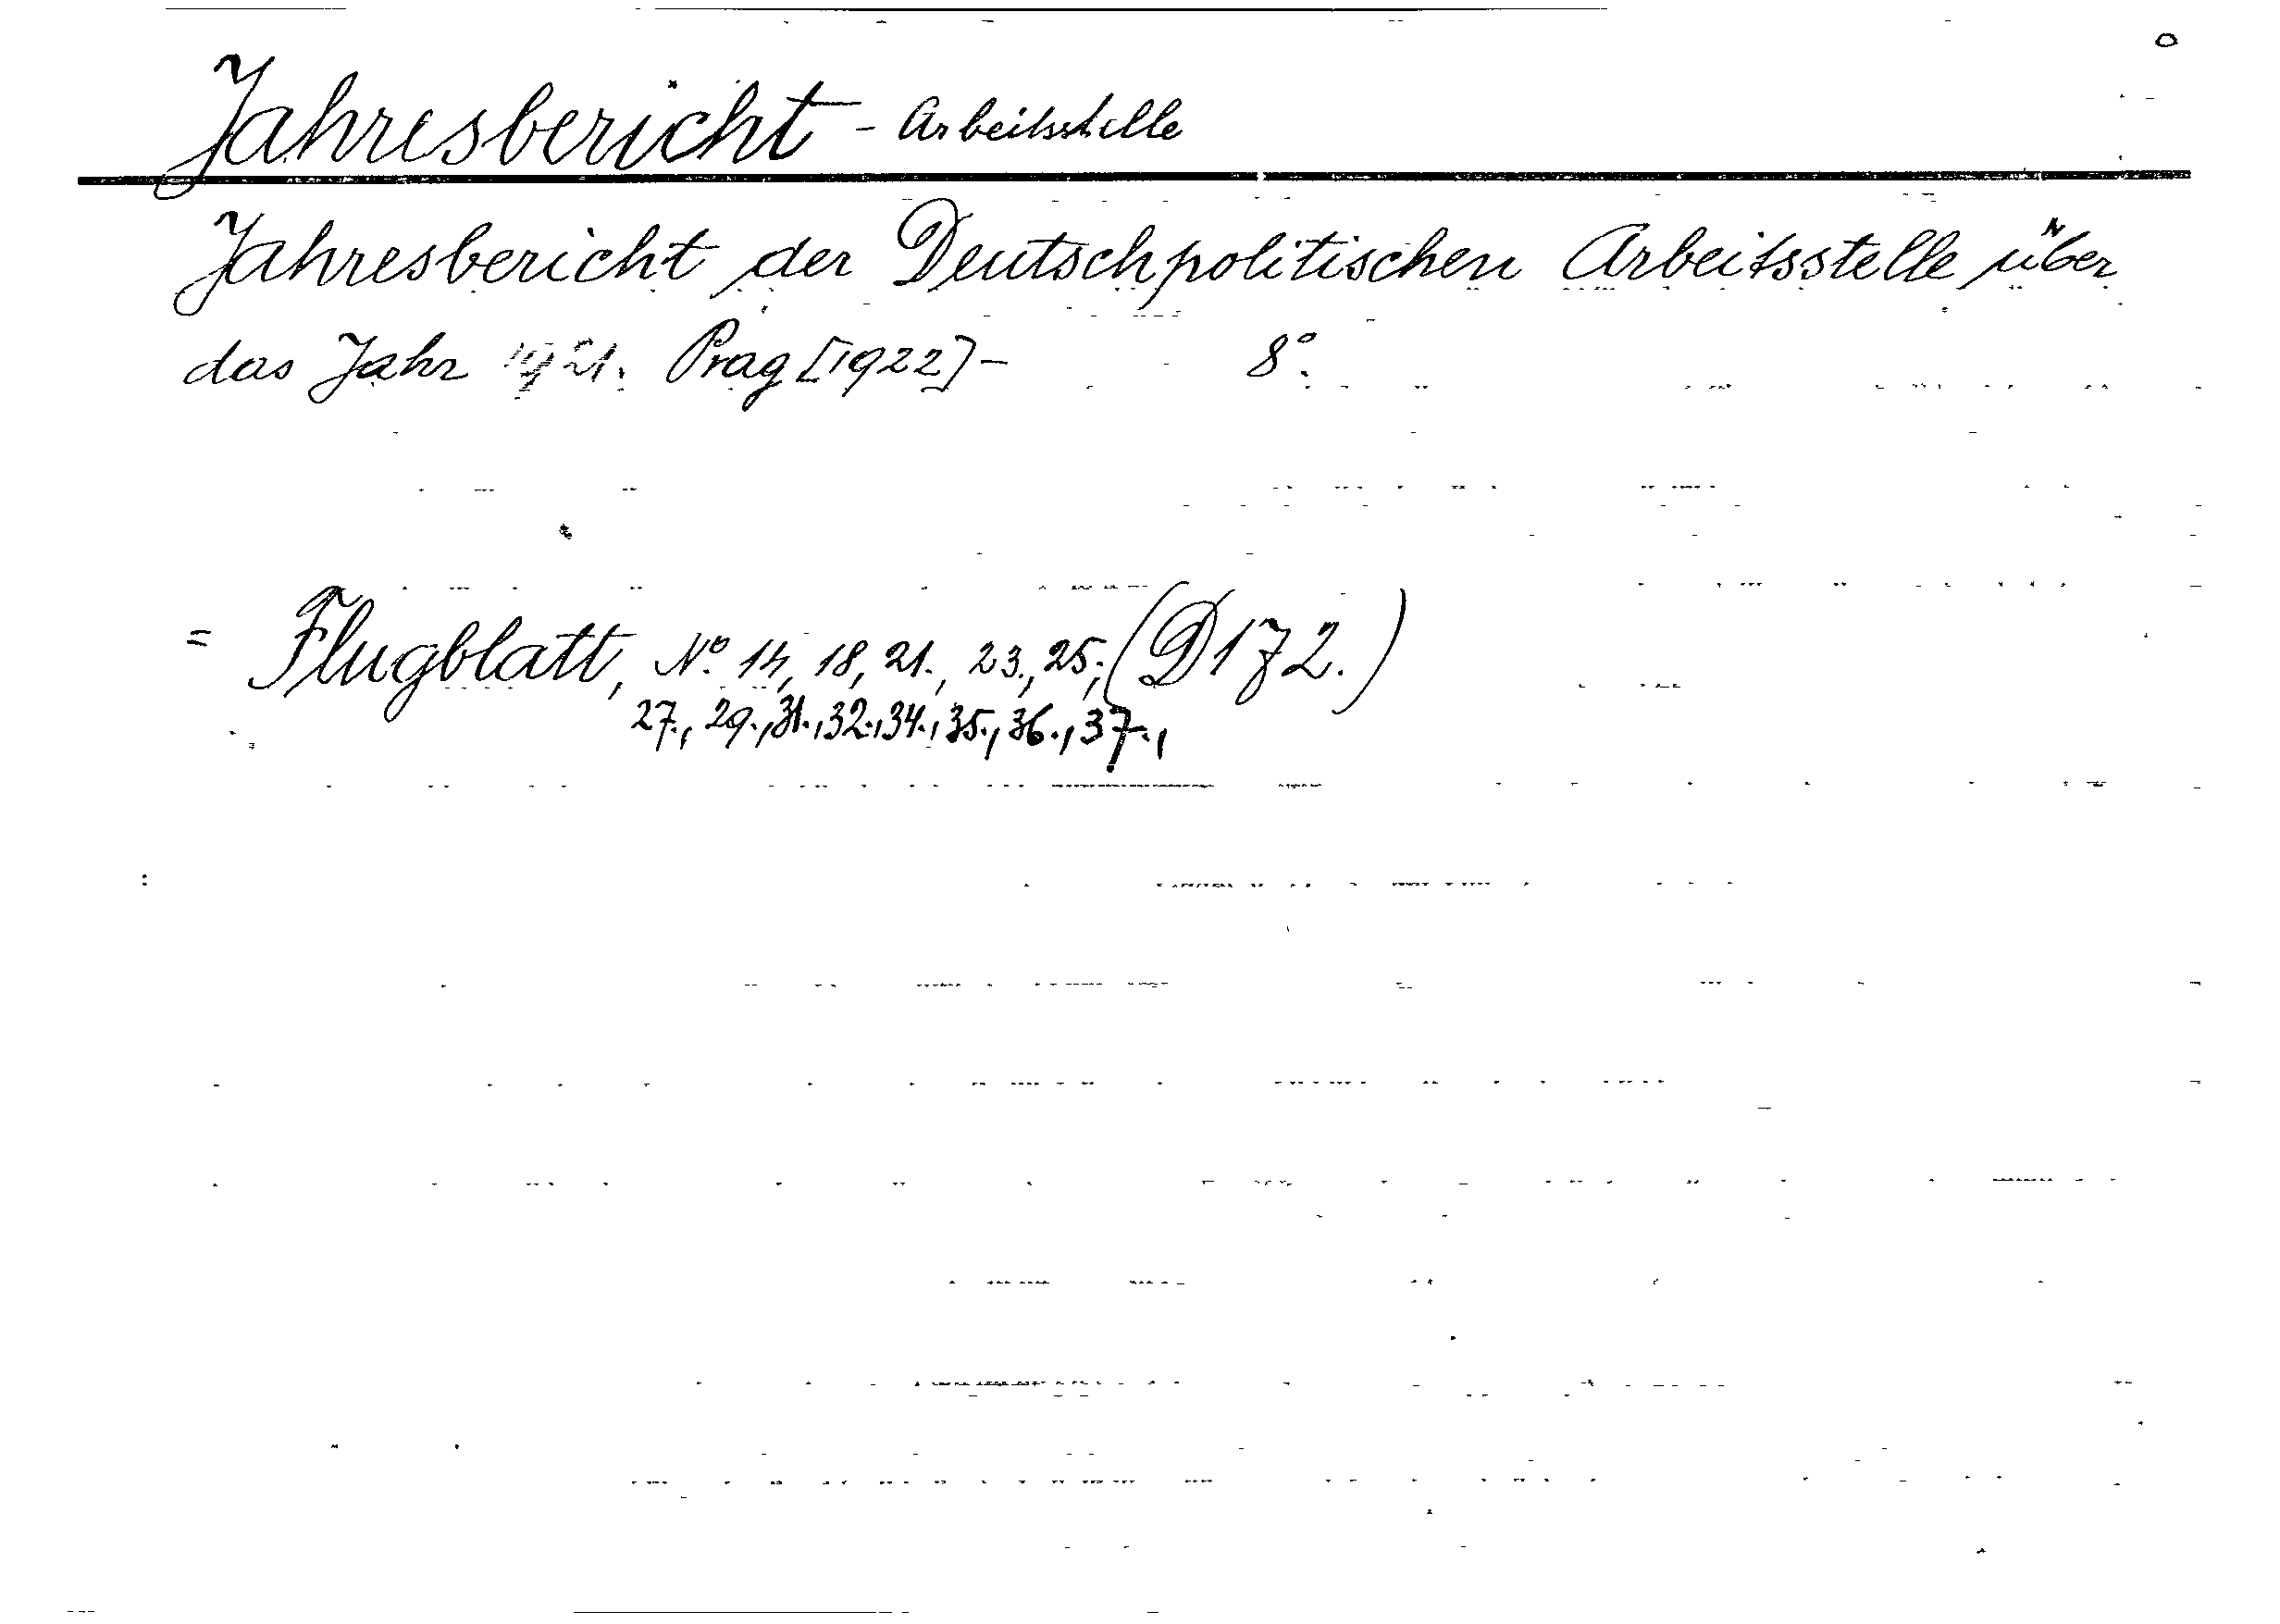 Jahresbericht - Arbeitsstelle
Jahresbericht der Deutschpolitischen Arbeitsstelle über
das Jahr 1921. Prag [1922] - 8°.
= Flugblatt, No. 14, 18, 21., 23., 25., (D172.)
27., 29., 31., 32., 34., 35., 36., 37.,